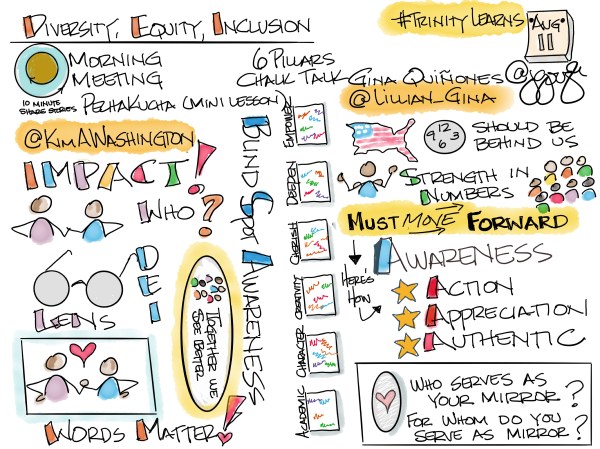 Diversity, Equity, Inclusion
#TrinityLearns
Aug
11
Morning
Meeting
10 minute
share stories
PechaKucha (mini lesson)
6 Pillars
Chalk Talk
Gina Quiñones
@Lillian_Gina
@jgough
@KimAWashington
Impact!
Who?
DEI
Lens
Together we
see better
Words Matter!
Blind Spot Awareness
Empower
Deepen
Cherish
Creativity
Character
Academic
9 12 3 6
Should be
behind us
Strength in
Numbers
Must Move Forward
Here's
How
Awareness
Action
Appreciation
Authentic
Who serves as
your mirror?
For whom do you
serve as mirror?